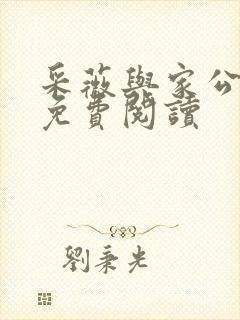 采薇與家公
免費閱讀
劉秉光